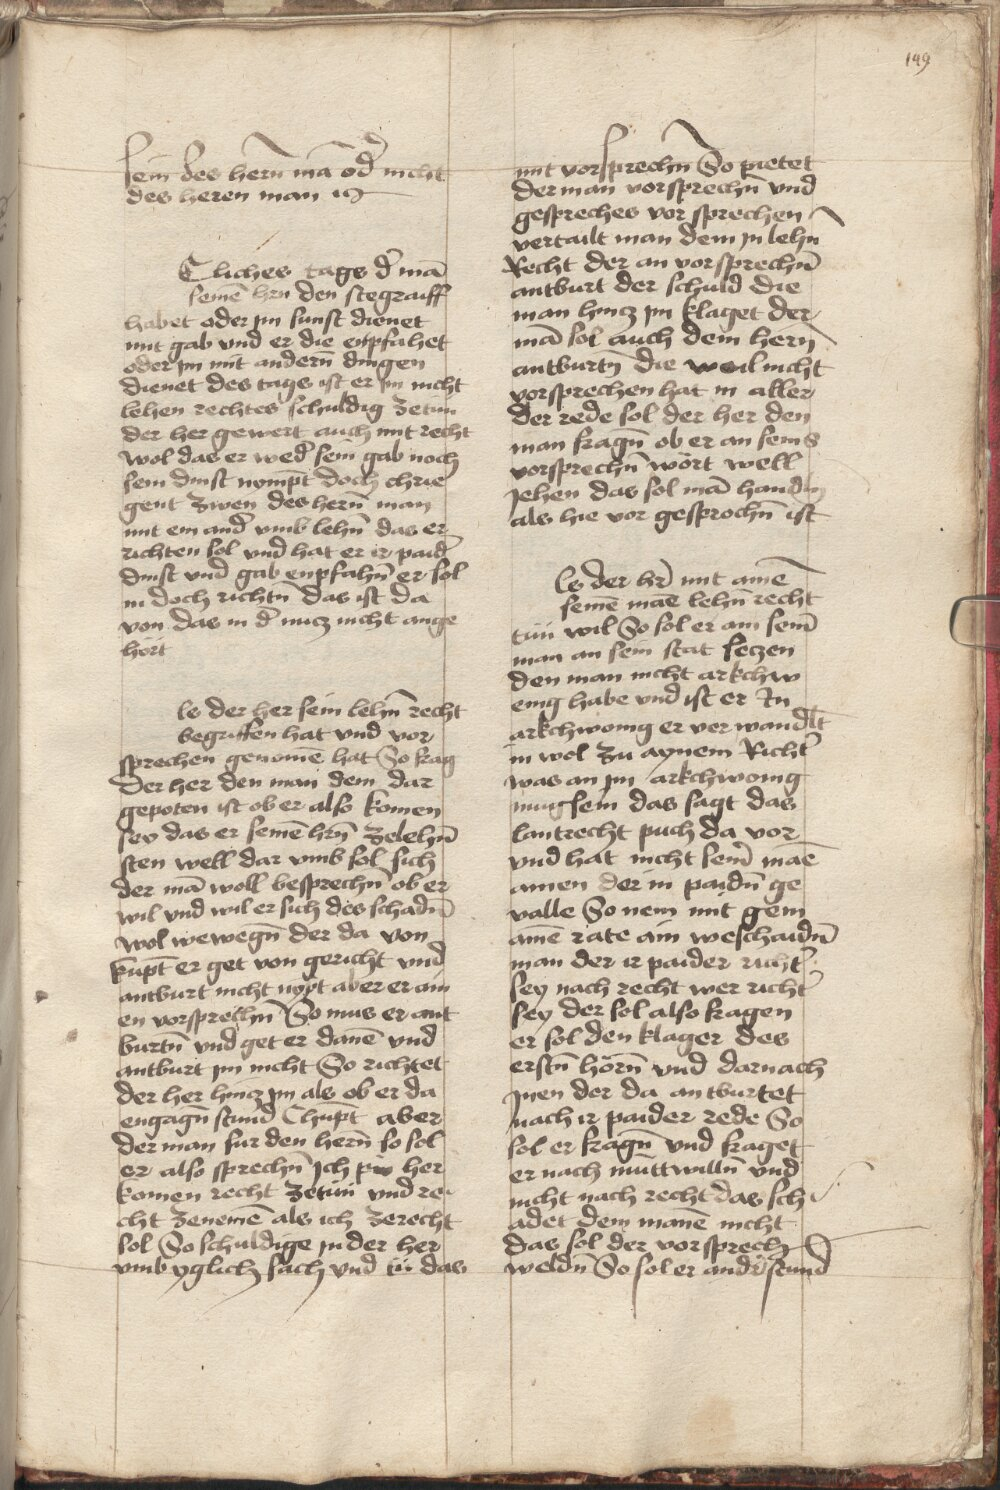 149
sein des hern̄ mā od̄ nicht
des heren man ist
Eliches tags d̄ mā
seinē hrn den stegraiff
habet oder jm sunst dienet
mit gab vnd er die enpfahet
oder jm mit andern̄ dingen
dienet des tags ist er jm nicht
lehen rechtes schuldig zetun
der her gewert auch mit recht
wol das er wed̄ sein gab noch
sein dinst nompt̄ doch chrie
gent zwen des hern̄ man
mit ein and̄ vmb lehn̄ das er
richten sol vnd hat er ir paid̄
dinst vnd gab enpfahn̄ er sol
in doch richtn̄ das ist da
von das in d̄ nucz nicht ange
hört
ls der her sein lehn̄ recht
begriffen hat vnd vor
sprechen genomē hat So frag
Der her den man dem dar
gepoten ist ob er also komen
sey das er seinē hrn̄ zelehn̄
sten well dar vmb sol sich
der mā woll besprechn̄ ob er
wil vnd wil er sich des schadn̄
wol wewegn̄ der da von
kūpt er get von gericht vnd
antburt nicht nypt aber er ain
en vorsprechn̄ So mus er ant
burtn̄ vnd get er danē vnd
antburt jm nicht So richtet
der her hincz jm als ob er da
engagn̄ stund Chūpt aber
der man fur den hern̄ so sol
er also sprechn̄ Ich pin her
komen recht zetun vnd re
cht zenemē als ich zerecht
sol So schuldige jn der her
vmb yglich sach vnd tü das
mit vorsprechn̄ So pietet
der man vorsprechn̄ vnd
gespreches vor sprechen
vertailt man dem jn lehn̄
Recht der an vorsprechn̄
antburt der schuld die
man hincz jm klaget der
mā sol auch dem hern̄
antburtn̄ die weil nicht
vorsprechen hat in aller
der rede sol der her den
man fragn̄ ob er an seins
vorsprechn̄ wört well
jehen das sol mā handln
als hie vor gesprochn̄ ist
ls der hr̄ mit ainē
seinē mānē lehn̄ recht
tün wil So sol er ain sein̄
man an sein stat seczen
den man nicht arkchw
enig habe vnd ist er In
arkchwonig er verwandlt
in wol zu aynem Richt̄
was an jm arkchwonig
mug sein das sagt das
lantrecht puch da vor
vnd hat nicht sein̄ manē
ainen der in paidn̄ ge
valle So nem mit gem
ainē rate ain weschaidn̄
man der ir paider richt̄
sey nach recht wer richt̄
sey der sol also fragen
er sol den klager des
erstn̄ hörn̄ vnd darnach
jnen der da antburtet
nach ir paider rede So
sol er fragn̄ vnd fraget
er nach mūttwilln̄ vnd
nicht nach recht das sch
adet dem manē nicht
das sol der vorsprech
weldn̄ So sol er and̄ stund